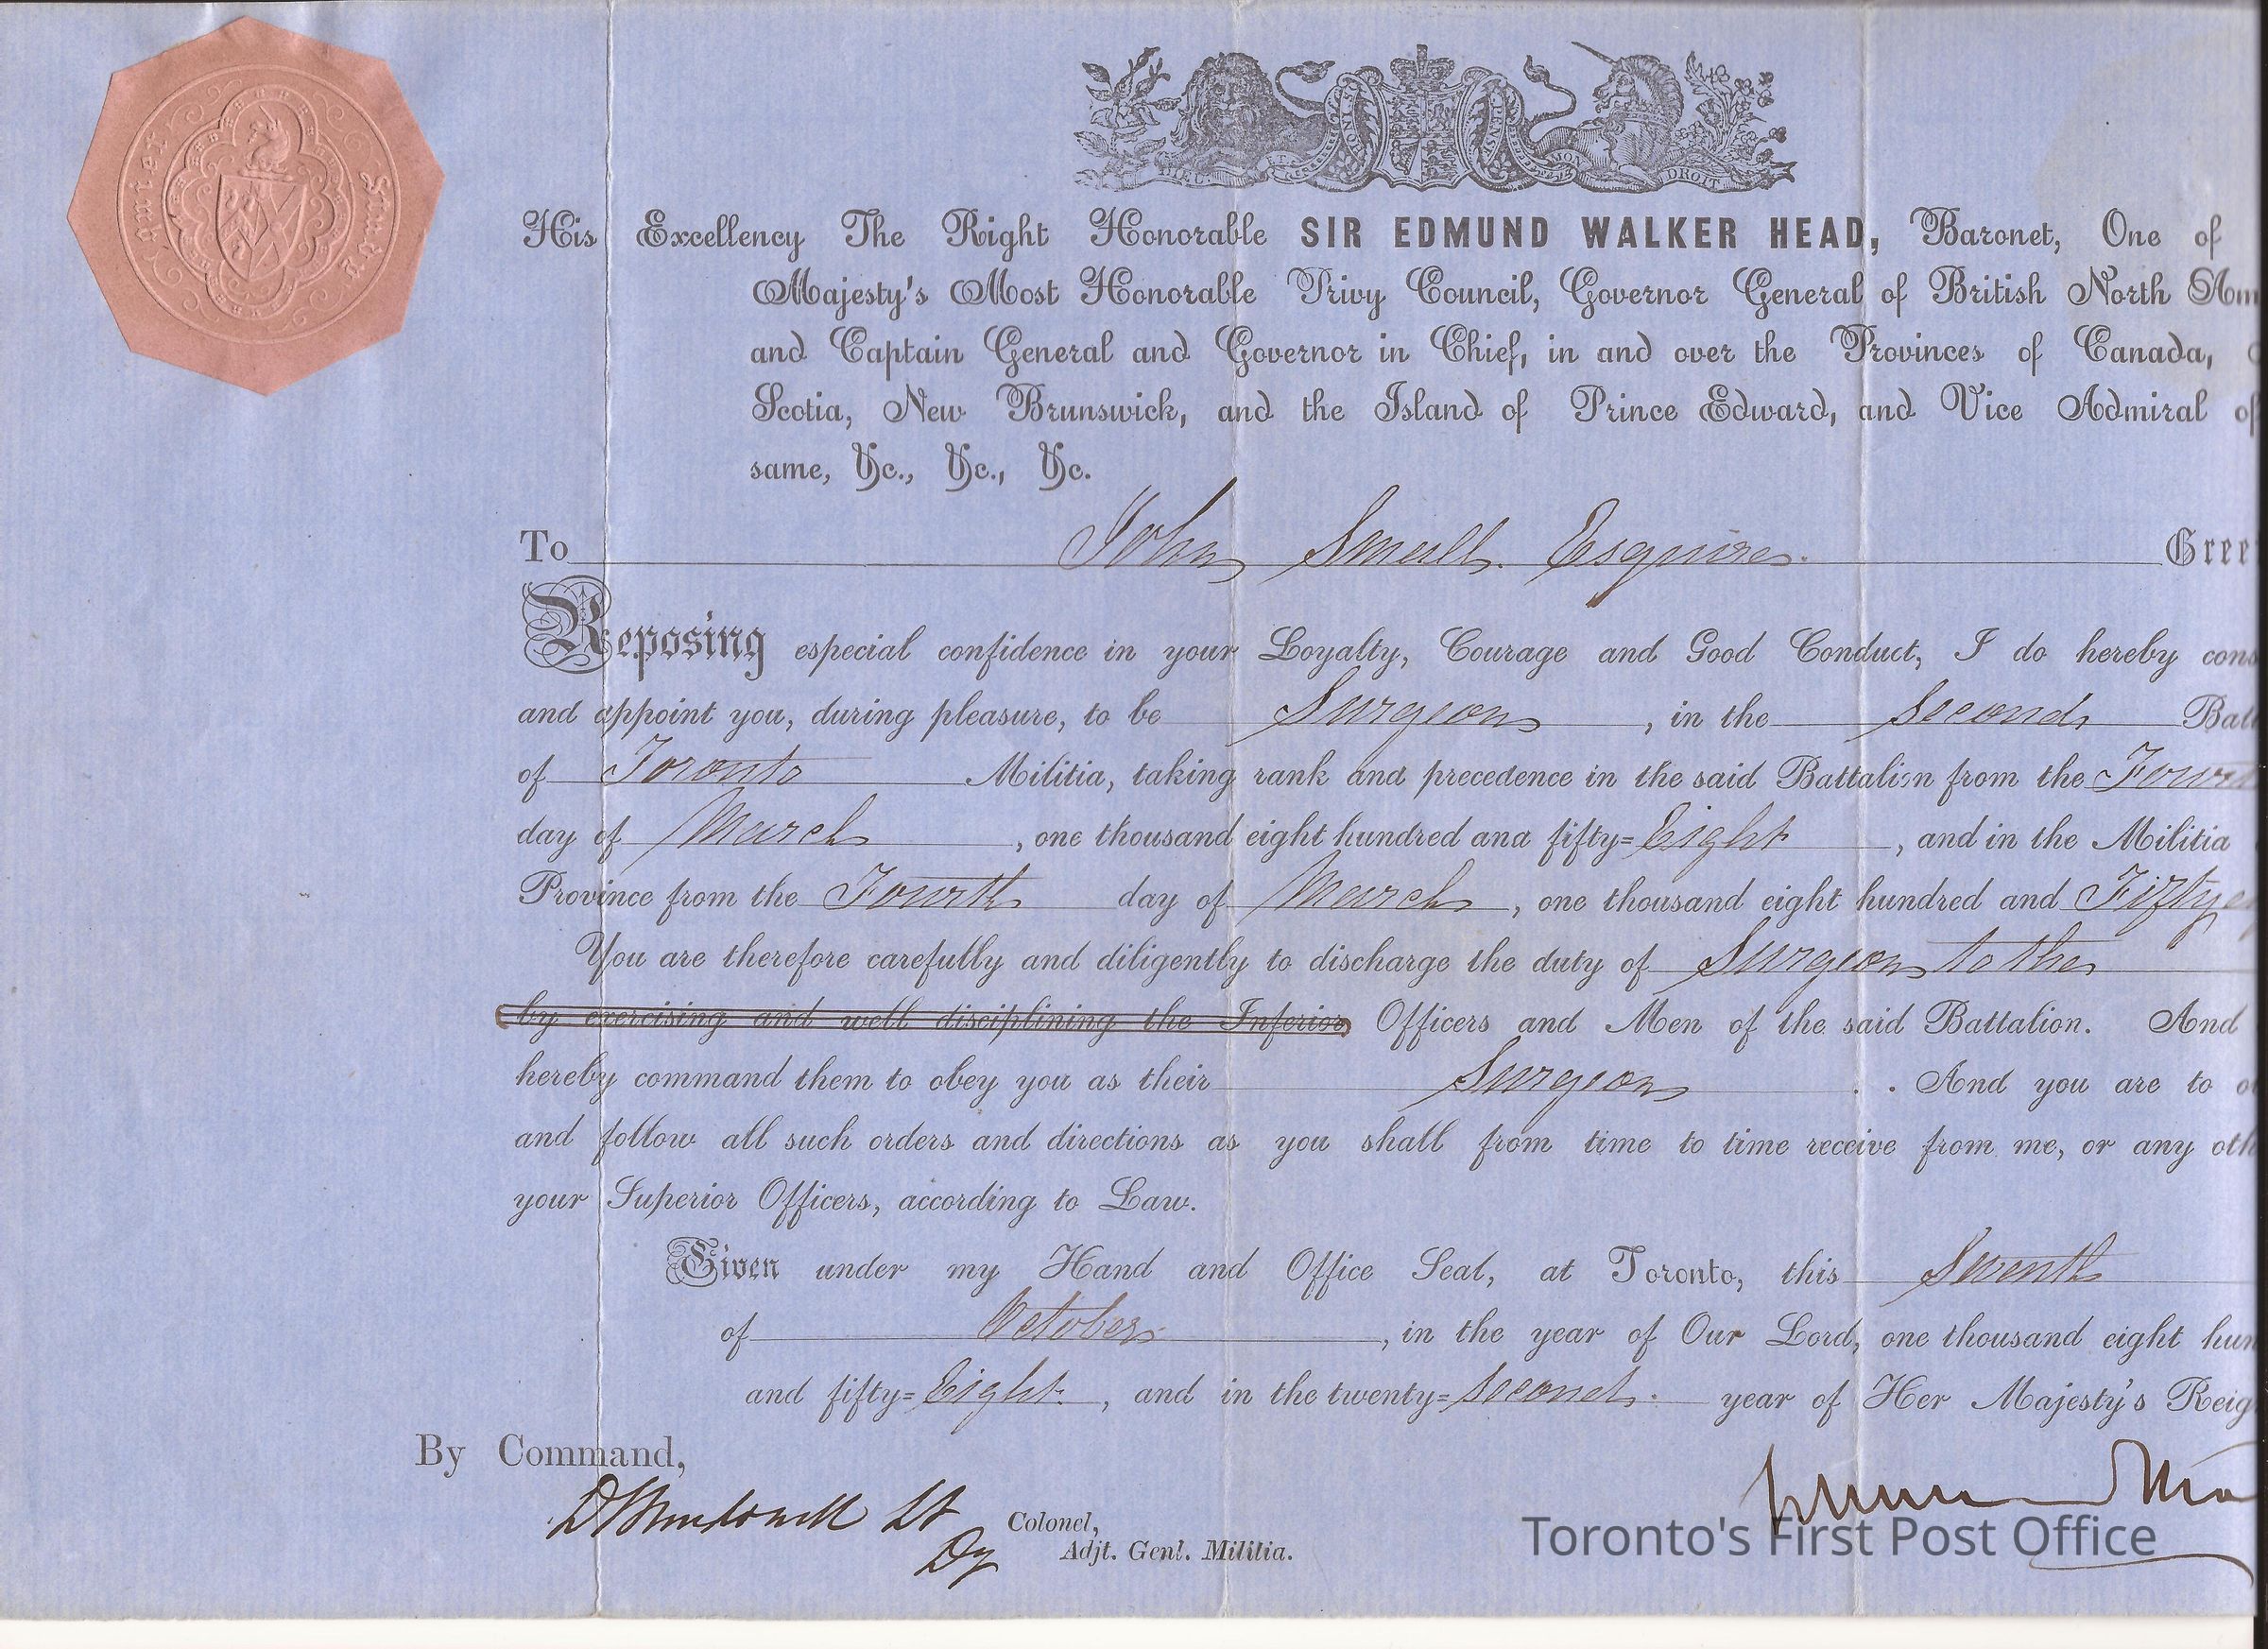 HONI SOIT
DIEU ET MON DROIT
Study
His Excellency The Right Honorable SIR EDMUND WALKER HEAD, Baronet, One of
Majesty's Most Honorable Privy Council, Governor General of British North Am
and Captain General and Governor in Chief, in and over the Provinces of Canada,
Scotia, New Brunswick, and the Island of Prince Edward, and Vice Admiral of
same, &c., &c., &c.
To John Small Esquire. Gree
Reposing especial confidence in your Loyalty, Courage and Good Conduct, I do hereby cons
and appoint you, during pleasure, to be Surgeon, in the Second Batt
of Toronto Militia, taking rank and precedence in the said Battalion from the Fourt
day of March, one thousand eight hundred and fifty=Eight, and in the Militia
Province from the Fourth day of March, one thousand eight hundred and Fifty e
You are therefore carefully and diligently to discharge the duty of Surgeon to the
by exercising and well disciplining the Inferior Officers and Men of the said Battalion. And
hereby command them to obey you as their Surgeon. And you are to o
and follow all such orders and directions as you shall from time to time receive from me, or any oth
your Superior Officers, according to Law.
Given under my Hand and Office Seal, at Toronto, this Seventh
of October, in the year of Our Lord, one thousand eight hun
and fifty=Eight, and in the twenty=second. year of Her Majesty's Reig
By Command,
Lt Colonel,
Dy Adjt. Genl. Militia.
Toronto's First Post Office